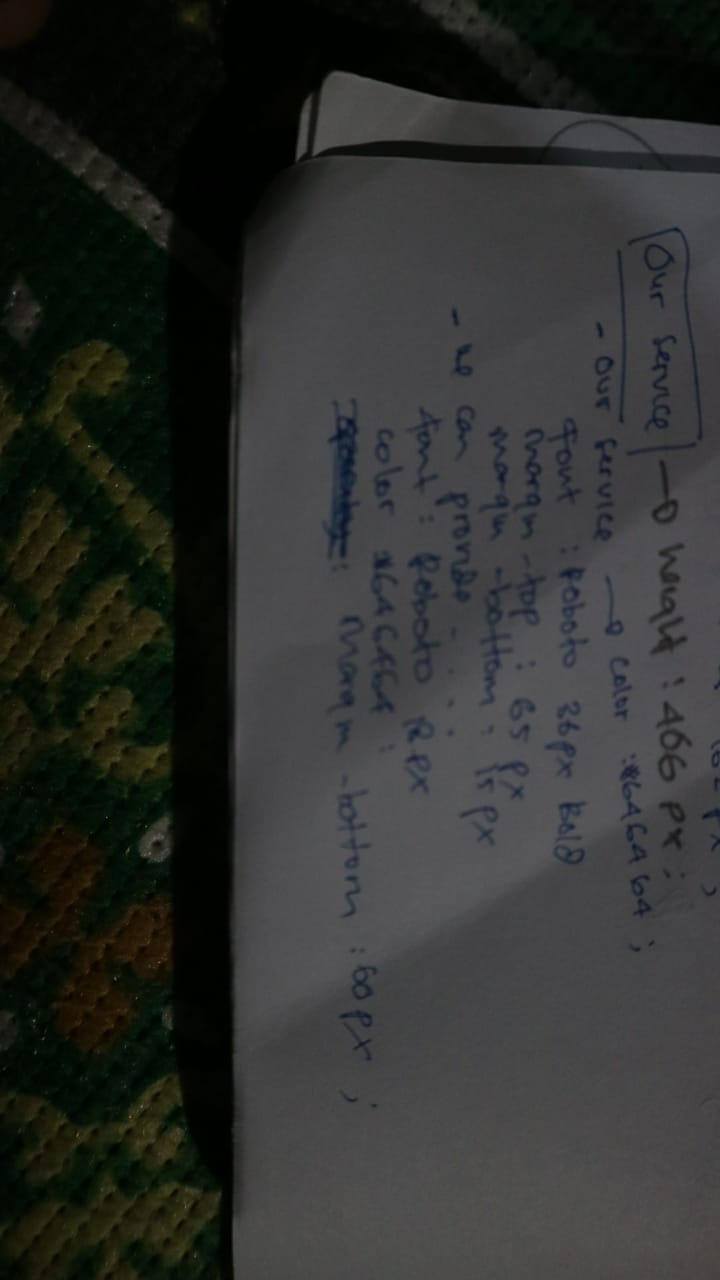 Our Service → height : 466 px ;
- Our Service → color : #646464 ;
font : Roboto 36px Bold
margin-top : 65 px
margin-bottom : 15 px
- we can provide . . .
font : Roboto 12 px
color #646464 :
margin-bottom : 60 px ;